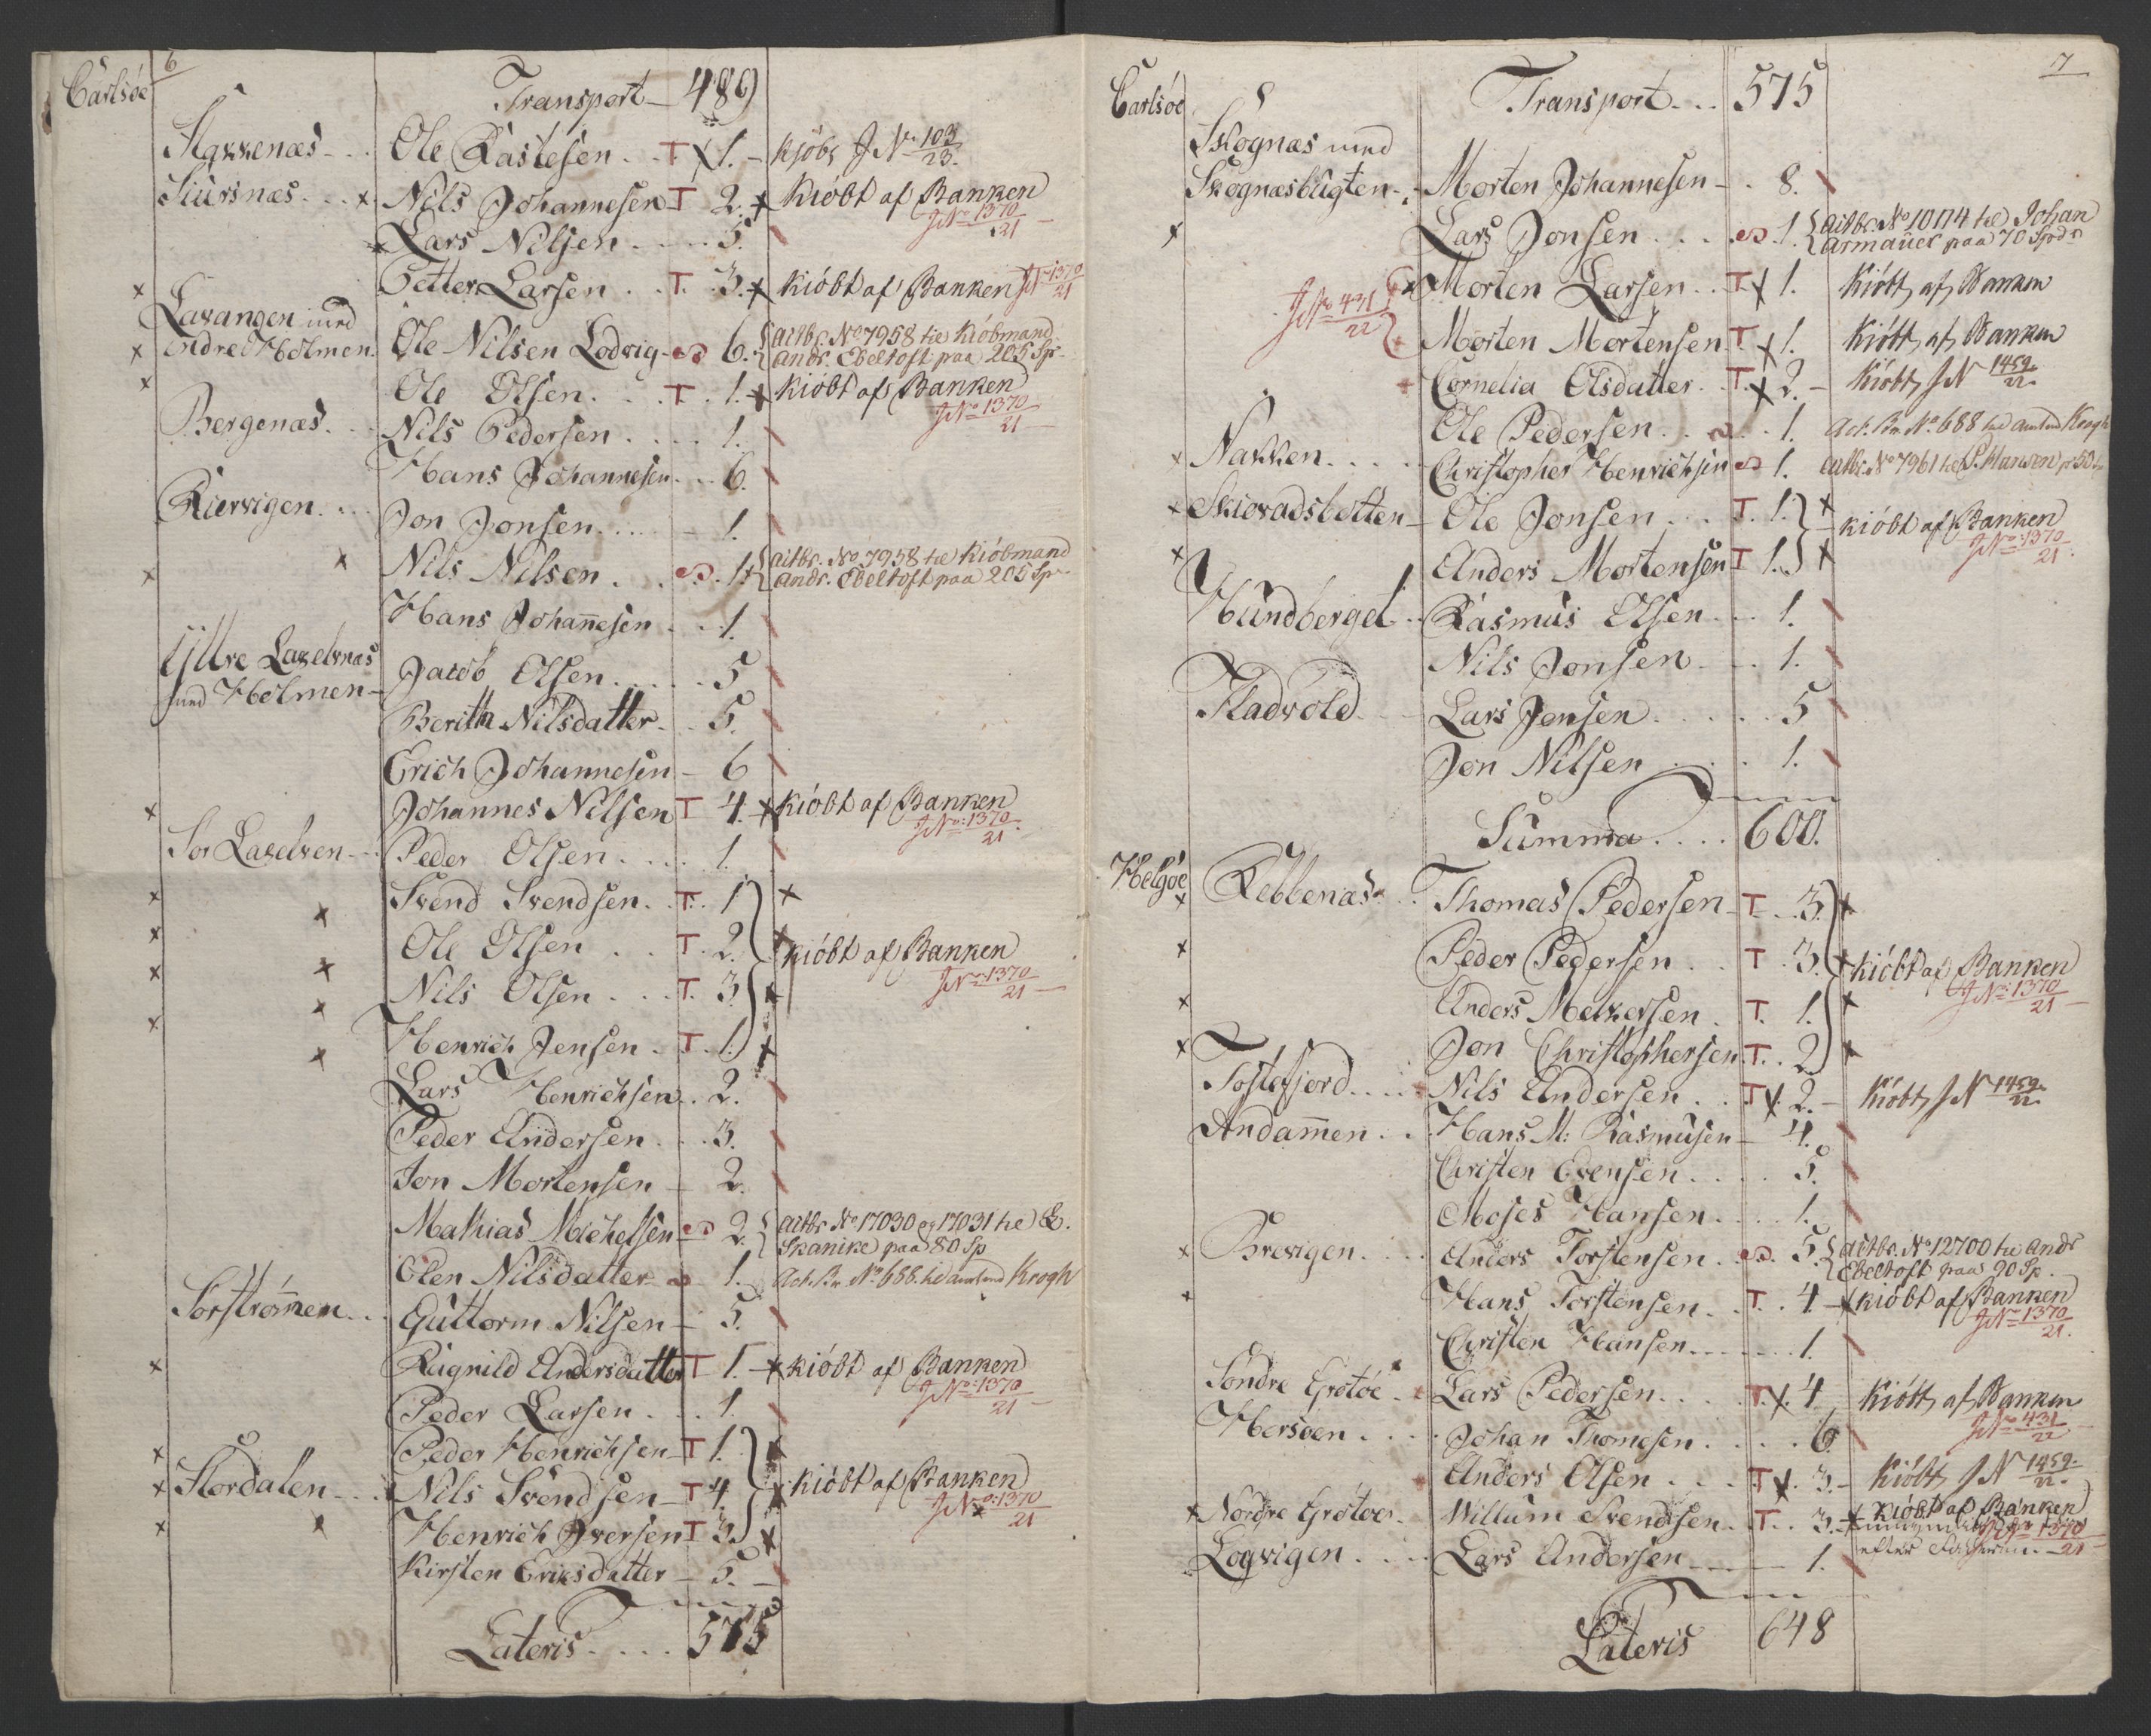 6
Carlsöe
Transport 489
Stakkenæs Ole Rastesen T 1. Kjöbt J N 103/23
Siursnæs Nils Johannesen T 2. Kiöbt af Banken
J No 1370/21
Lars Nilsen 5.
Petter Larsen T. 3. Kiöbt af Banken J No 1370/21
Laxangen med
Indre Holmen Ole Nilsen Lodvig 6. actbr. No 7958 til Kiöbmand
Andr. Ebeltoft paa 205 Sp
Ole Olsen T. 1. Kiöbt af Banken
J No 1370/21
Bergenæs Nils Pedersen 1.
Hans Johannesen 6.
Kiervigen Jon Jonsen 1.
Nils Nilsen 1. actbr. No 7958 til Kiöbmand
Andr. Ebeltoft paa 205 Sp
Hans Johannesen 1.
Yttre Laxelvnæs
med Holmen Jacob Olsen 5
Berith Nilsdatter 5.
Erich Johannesen 6
Johannes Nilsen T 4. Kiöbt af Banken
J No: 1370/21
Sör Laxelven Peder Olsen 1.
Svend Svendsen T. 1
Ole Olsen T. 2. Kiöbt af Banken
J No 1370/21
Nils Olsen T. 3.
Henrich Jensen T. 1.
Lars Henrichsen 2.
Peder Andersen 3.
Jon Mortensen 2.
Mathias Michelsen 2. actbr No 17030 og 17031 til E.
Skanike paa 80 Sp
Elen Nilsdatter 1. Act. Br. No 688. til Amtmd Krogh
Sörströmmen Guttorm Nilsen 5.
Ragnild Andersdatter T 1. Kiöbt af Banken
J No: 1370/21
Peder Larsen 1.
Peder Henrichsen T 1.
Stordalen Nils Svendsen T 4. Kiöbt af Banken
J No: 1370/21
Henrich Iversen T 3.
Kirsten Eriksdatter 5.
Lateris 575
7
Carlsöe
Transport 575
Skognæs med
Skognæsbugten Morten Johannesen 8.
Lars Jonsen 1. actbr. No 10174 til Johan
Armauer paa 70 Spdr
J No 431/22
Morten Larsen T 1. Kiöbt af Banken
Morten Mortensen T. 1. Kiöbt af Banken
Cornelia Olsdatter T. 2. Kiöbt J N 1459/22
Ole Pedersen 1. Act. Br. No 688 til Amtmd Krogh
Nakken Christopher Henrichsen 1. actbr. No 7961 til P. Hansen p 50 Sp
Skiovadsbotten Ole Jonsen T. 1. Kiöbt af Banken
J No: 1370/21
Anders Mortensen T 1.
Hundberget Rasmus Olsen 1.
Nils Jonsen 1.
Fladvold Lars Jensen 5
Jon Nilsen 1.
Summa 600.
Helgöe
Rebbenæs Thomas Pedersen T 3.
Peder Pedersen T 3. Kiöbt af Banken
J No: 1370/21
Anders Melkersen T. 1.
Jon Christophersen T. 2
Tostefjord Nils Andersen T 2. Kiöbt J N 1459/22
Andammen Hans M: Rasmusen 4.
Christen Evensen 5.
Moses Hansen 1.
Brevigen Anders Torstensen 5. actbr. No 12700 til Andr
Ebeltoft paa 90 Sp.
Hans Torstensen T. 4 Kiöbt af Banken
J No 1370/21.
Christen Hansen 1.
Söndre Grötöe Lars Pedersen T. 4 Kiöbt af Banken
J No 431/22
Hersöen Johan Thomesen 6
Anders Olsen T. 3. Kiöbt J N 1459/22
Nordre Grötöe Willum Svendsen T. 3. Kiöbt af Banken
J No 1370/21
efter
Logvigen Lars Andersen 1.
Lateris 648